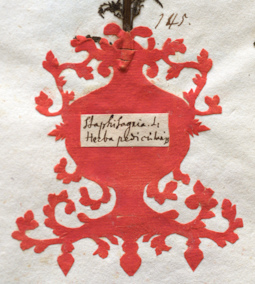 145.
Staphisagria. s.
Herba pedicularis